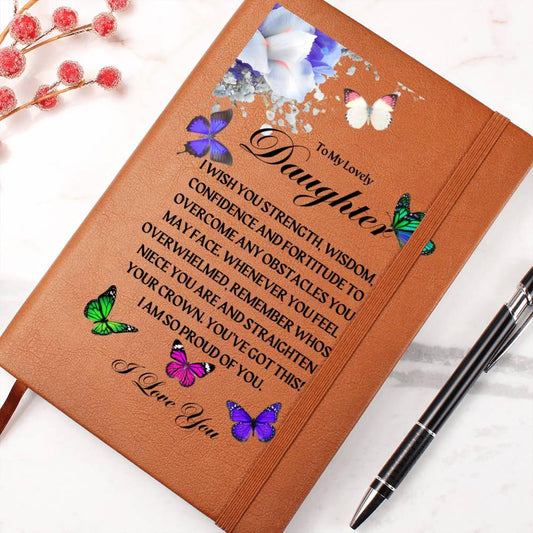 To My Lovely
Daughter
I WISH YOU STRENGTH, WISDOM,
CONFIDENCE AND FORTITUDE TO
OVERCOME ANY OBSTACLES YOU
MAY FACE. WHENEVER YOU FEEL
OVERWHELMED, REMEMBER WHOS
NIECE YOU ARE AND STRAIGHTEN
YOUR CROWN. YOU'VE GOT THIS!
I AM SO PROUD OF YOU.
I Love You